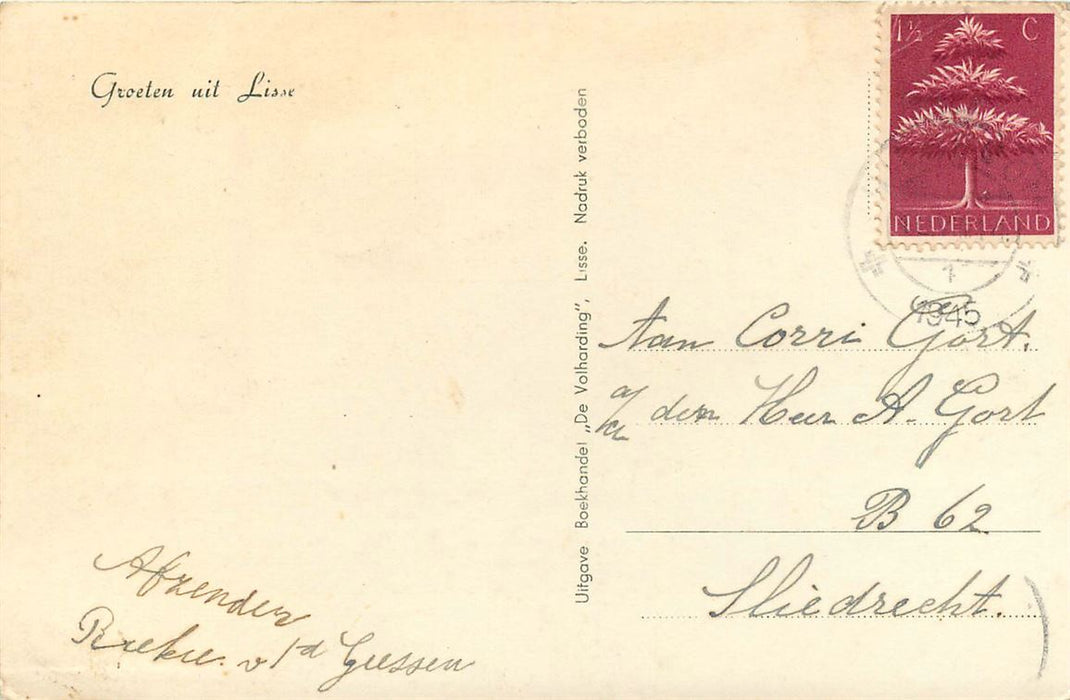 Groeten uit Lisse
Uitgave Boekhandel „De Volharding”, Lisse. Nadruk verboden
1½ C
NEDERLAND
1945
Aan Corri Gort.
a/d den Heer A. Gort
B 62
Sliedrecht.
Afzender
v/d Giessen